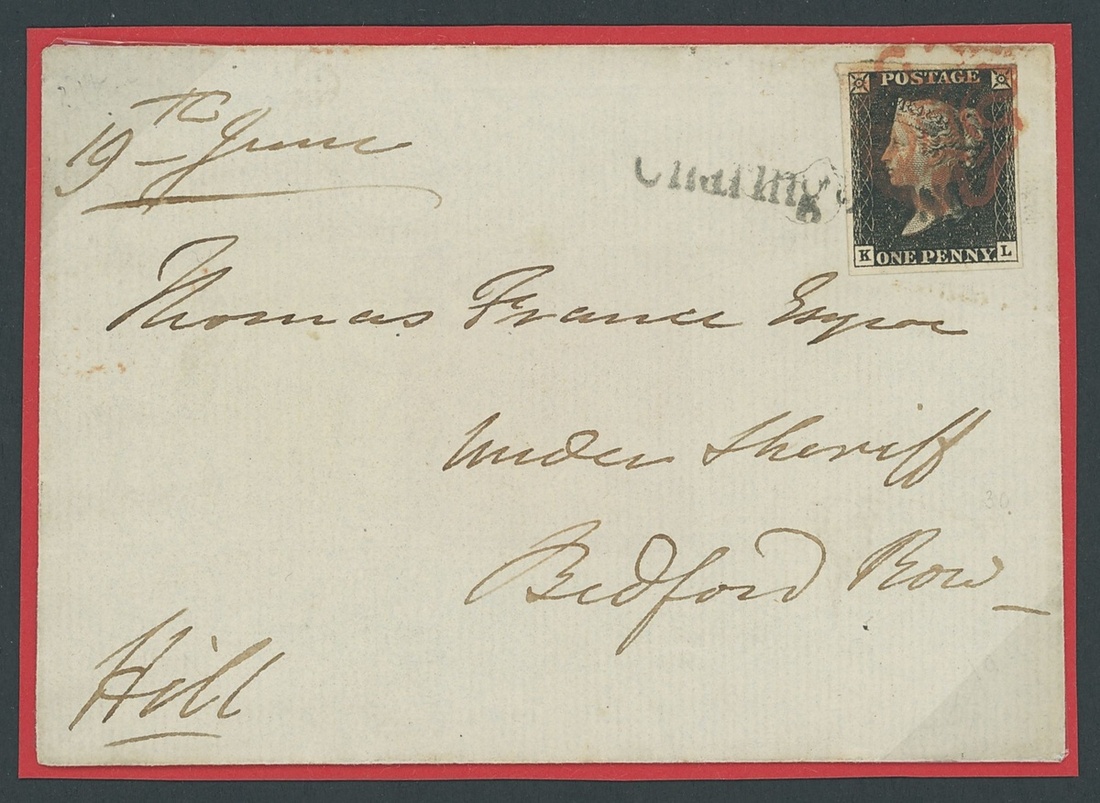 19th June
POSTAGE
Charing
K ONE PENNY. L
Thomas France Esqre
Under Sheriff
Bedford Row
Hill